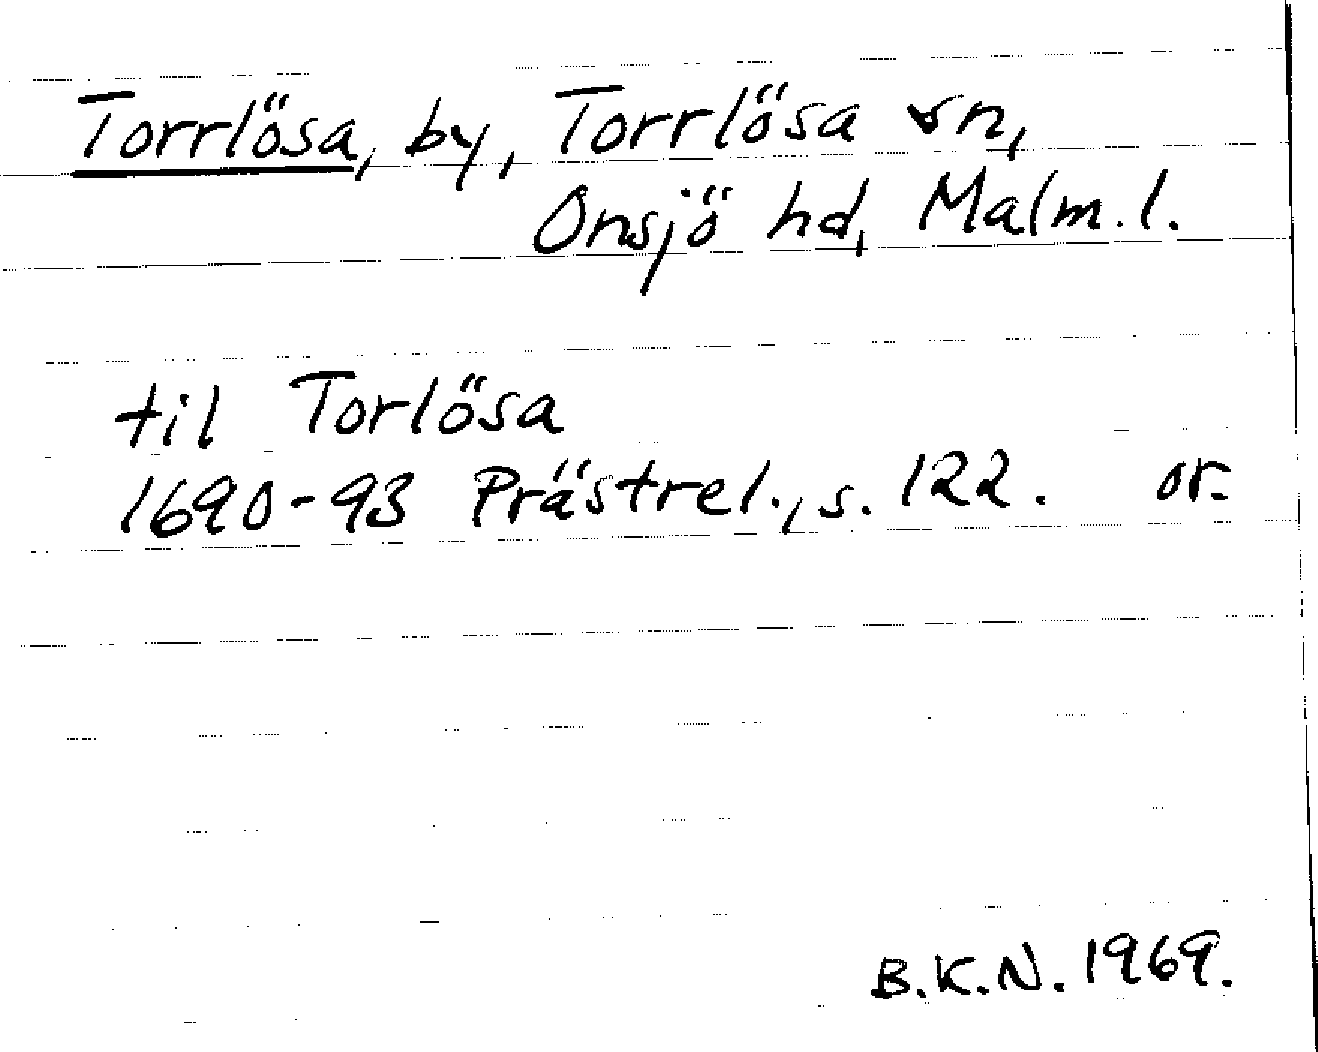 Torrlösa, by, Torrlösa sn,
Onsjö hd, Malm.l.
til Torlösa
1690-93 Prästrel., s. 122. or.
B.K.N. 1969.